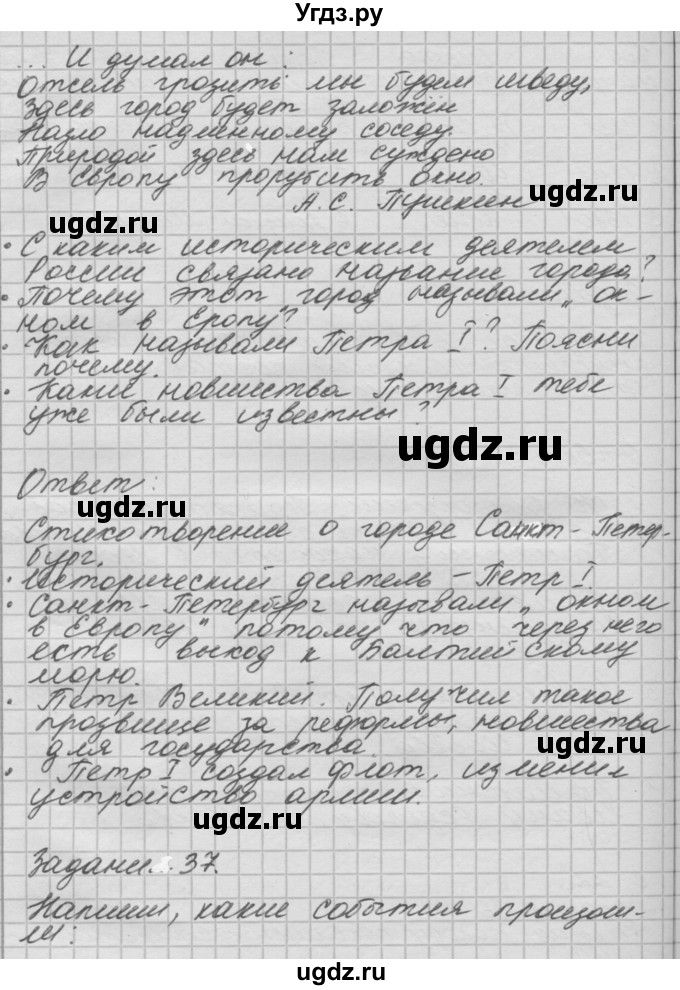 Угдз.ру
... И думал он:
Отсель грозить мы будем шведу,
Здесь город будет заложен
Назло надменному соседу.
Природой здесь нам суждено
В Европу прорубить окно.
А.С. Пушкин
ugdz.ru
• С каким историческим деятелем
России связано название города?
ugdz.ru
• Почему этот город называли „ок-
ном в Еропу"?
• Как называли Петра I? Поясни
почему.
• Какие новшества Петра I тебе
уже были известны?
ugdz.ru
Ответ:
ugdz.ru
Стихотворение о городе Санкт-Петер-
бург.
• Исторический деятель – Петр I.
• Санкт-Петербург называли „окном
в Европу" потому что через него
есть выход к Балтийскому
морю.
• Петр Великий. Получил такое
прозвище за реформы, новшества
для государства.
ugdz.ru
• Петр I создал флот, изменил
устройство армии.
ugdz.ru
Задани... 37.
Напиши, какие события произош-
ли:
ugdz.ru